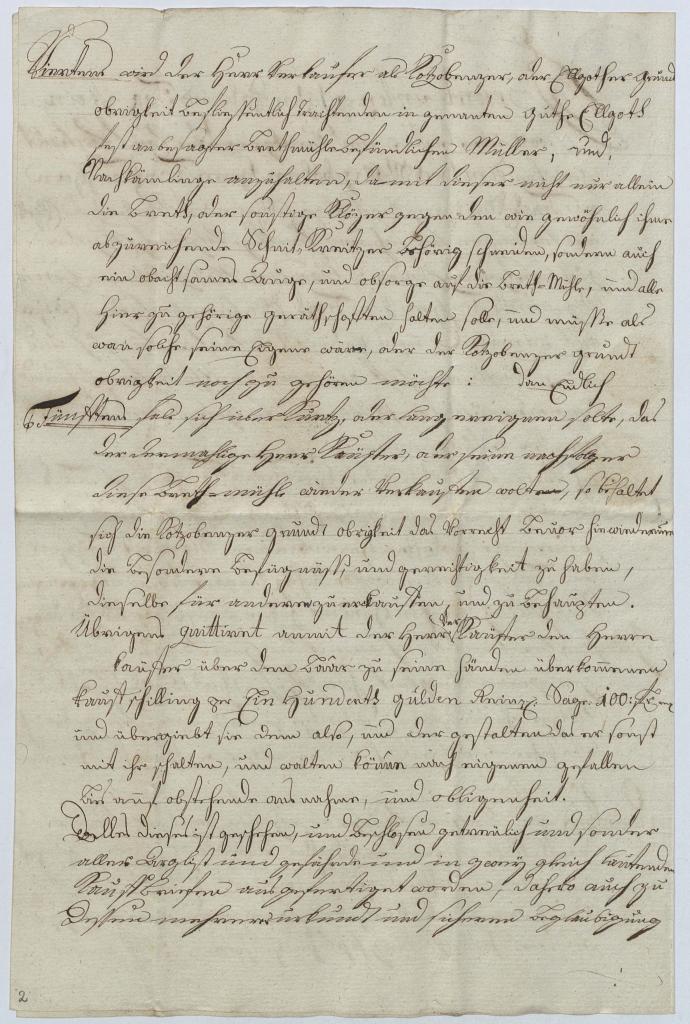 Viertens wird der Herr Verkaufer als Kotzobenzer, oder Ellgother grund
obrigkeit beflissentlich trachten den in genanten guthe Ellgoth
fest an besagter Brethmühle befündlichen Müller, und
Nachkömlinge anzuhalten, damit dieser nicht nur allein
die Breth, oder sonstige Klözer gegen den wie gewöhnlich ihme
abzureichende Schnit-Kreitzer behörig schneiden, sondern auch
ein obachtsames Auge, und obsorge auf die Breth-Mühle, und alle
hierzu gehörige geräthschaften halten solle, und müsse als
wan solche seine Eigene wäre, oder der Kotzobenzer grundt
obrigkeit noch zu gehören möchte: dan Endlich
Fünftens falls sich über kurtz, oder lang ereignen solte, das
der dermahlige Herr Kaufter, oder seine nachfolger
diese Breth-mühle wieder verkauften wolten, so behaltet
sich die Kotzobenzer grundt obrigkeit das Vorrecht bevor hinwiederumb
die besondere befugnüss, und gerechtigkeit zu haben,
dieselbe für anderen zu erkauften, und zu behaupten.
Übrigens quittiret anmit der Herr Verkaufter den Herrn
kaufter über dem baar zu seine händen überkommenen
kauftschilling per Ein Hunderth gulden Reinz. Sage 100:
und übergiebt sie dem also, und der gestalten das er sonst
mit ihr schalten, und walten könne nach eigenem gefallen
bis auf obstehende ausnahme, und obligenheit.
Alles dieses ist geschehen, und beschlosen getreulich und sonder
aller Arglist und gefährde und in zwey gleich lautenden
Kauft briefen ausgefertiget worden, dahero auch zu
dessen mehrerer urkundt und sicheren beglaubigung
2